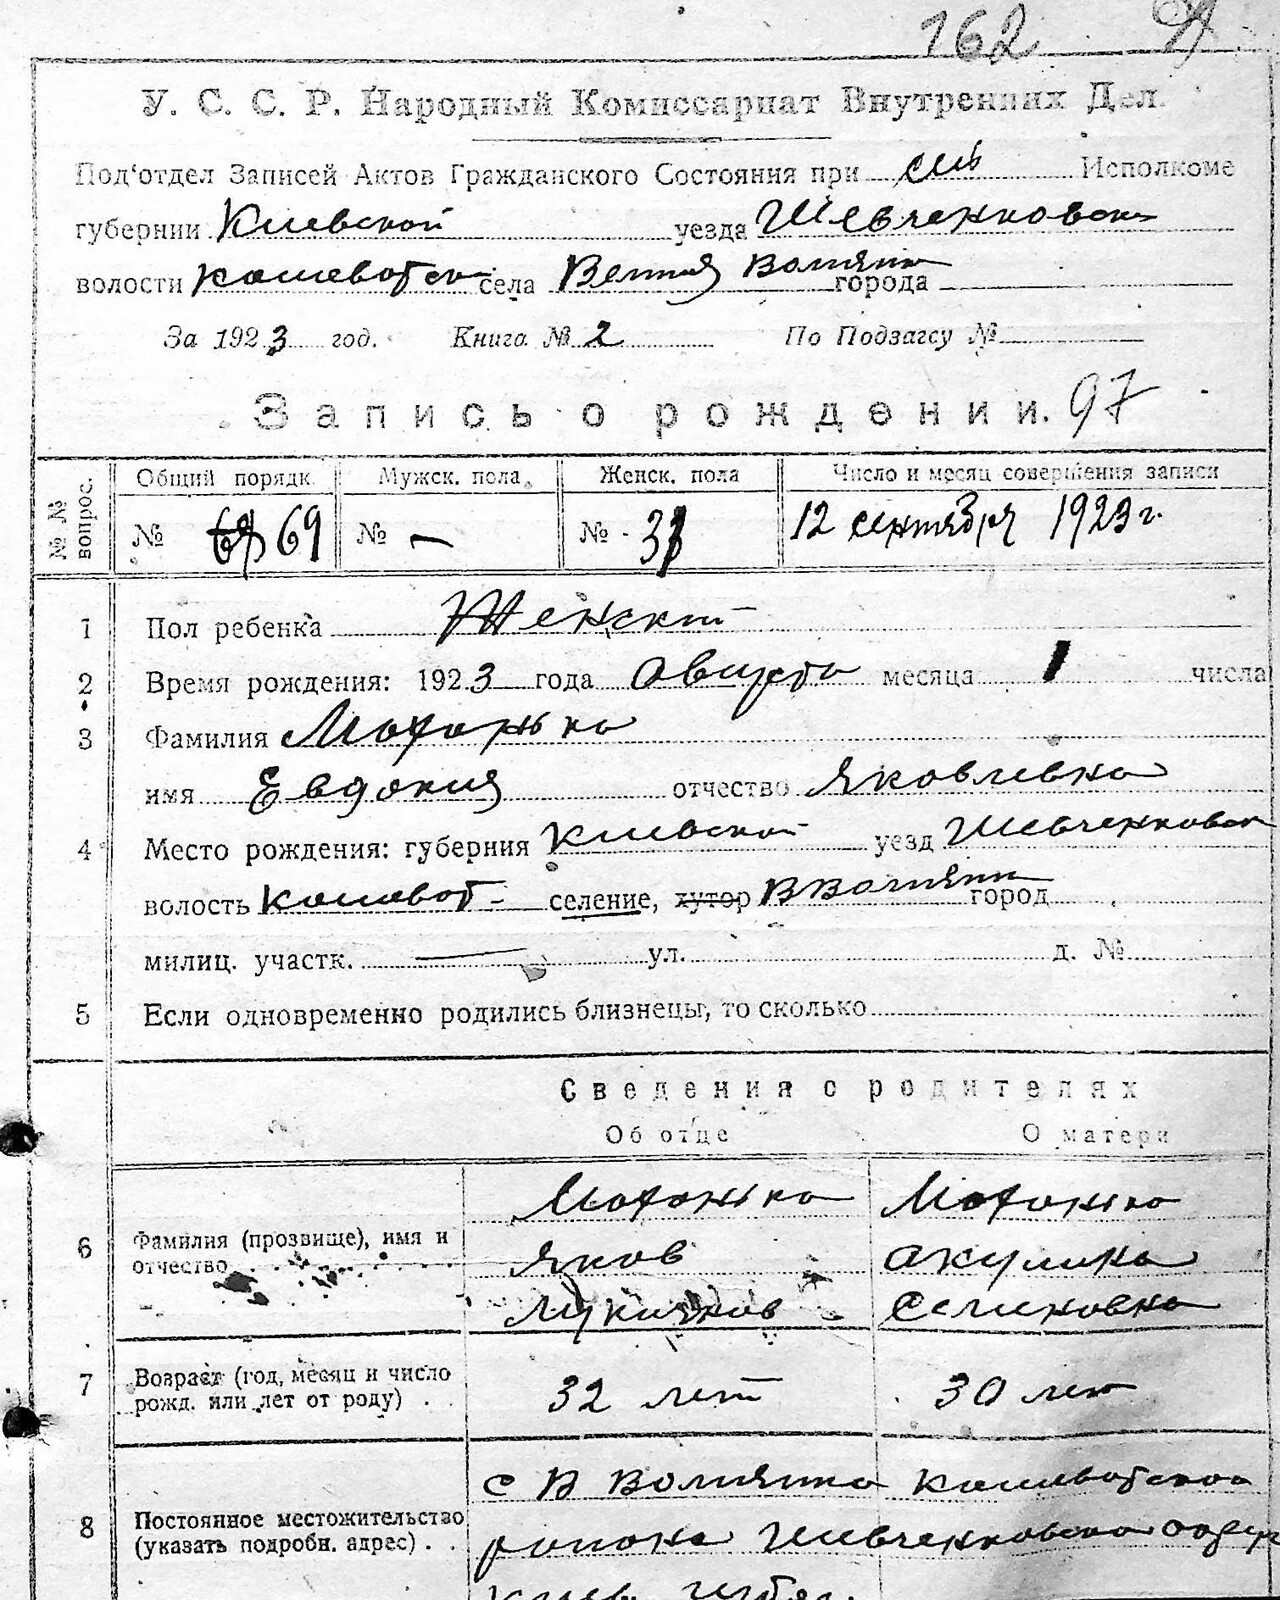 162
У. С. С. Р. Народный Комиссариат Внутренних Дел.
Под'отдел Записей Актов Гражданского Состояния при Исполкоме
губернии Киевской уезда Шевченковск
волости села города
За 1923 год. Книга № 2 По Подзагсу №
Запись о рождении. 97
№№ вопрос. Общий порядк. Мужск. пола. Женск. пола Число и месяц совершения записи
№ 69 № - № 12 сентября 1923 г.
1 Пол ребенка Женский
2 Время рождения: 1923 года Августа месяца 1 числа
3 Фамилия
имя Евдокия отчество Яковлевна
4 Место рождения: губерния Киевской уезд Шевченковск
волость селение, хутор город
милиц. участк. — ул. д. №
5 Если одновременно родились близнецы, то сколько
Сведения о родителях
Об отце О матери
6 Фамилия (прозвище), имя и отчество
Яков Акулина
Семеновна
7 Возраст (год, месяц и число рожд. или лет от роду) 32 лет 30 лет
8 Постоянное местожительство (указать подробн. адрес)
с В
района Шевченковского
Киев. губер.